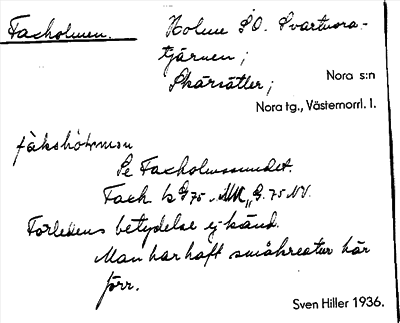 Facholmen. Holme SO. Svartnora-
tjärnen;
Skärsätter; Nora s:n
Nora tg., Västernorrl. l.
fàkshòlmɐn
Se Facholmssundet.
Fack k G 75. G. 75 NV.
Förledens betydelse ej känd.
Man har haft småkreatur här
förr.
Sven Hiller 1936.